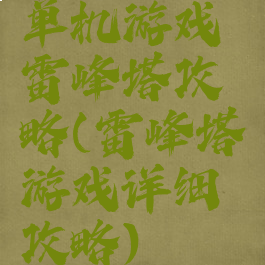 单机游戏
雷峰塔攻
略(雷峰塔
游戏详细
攻略)